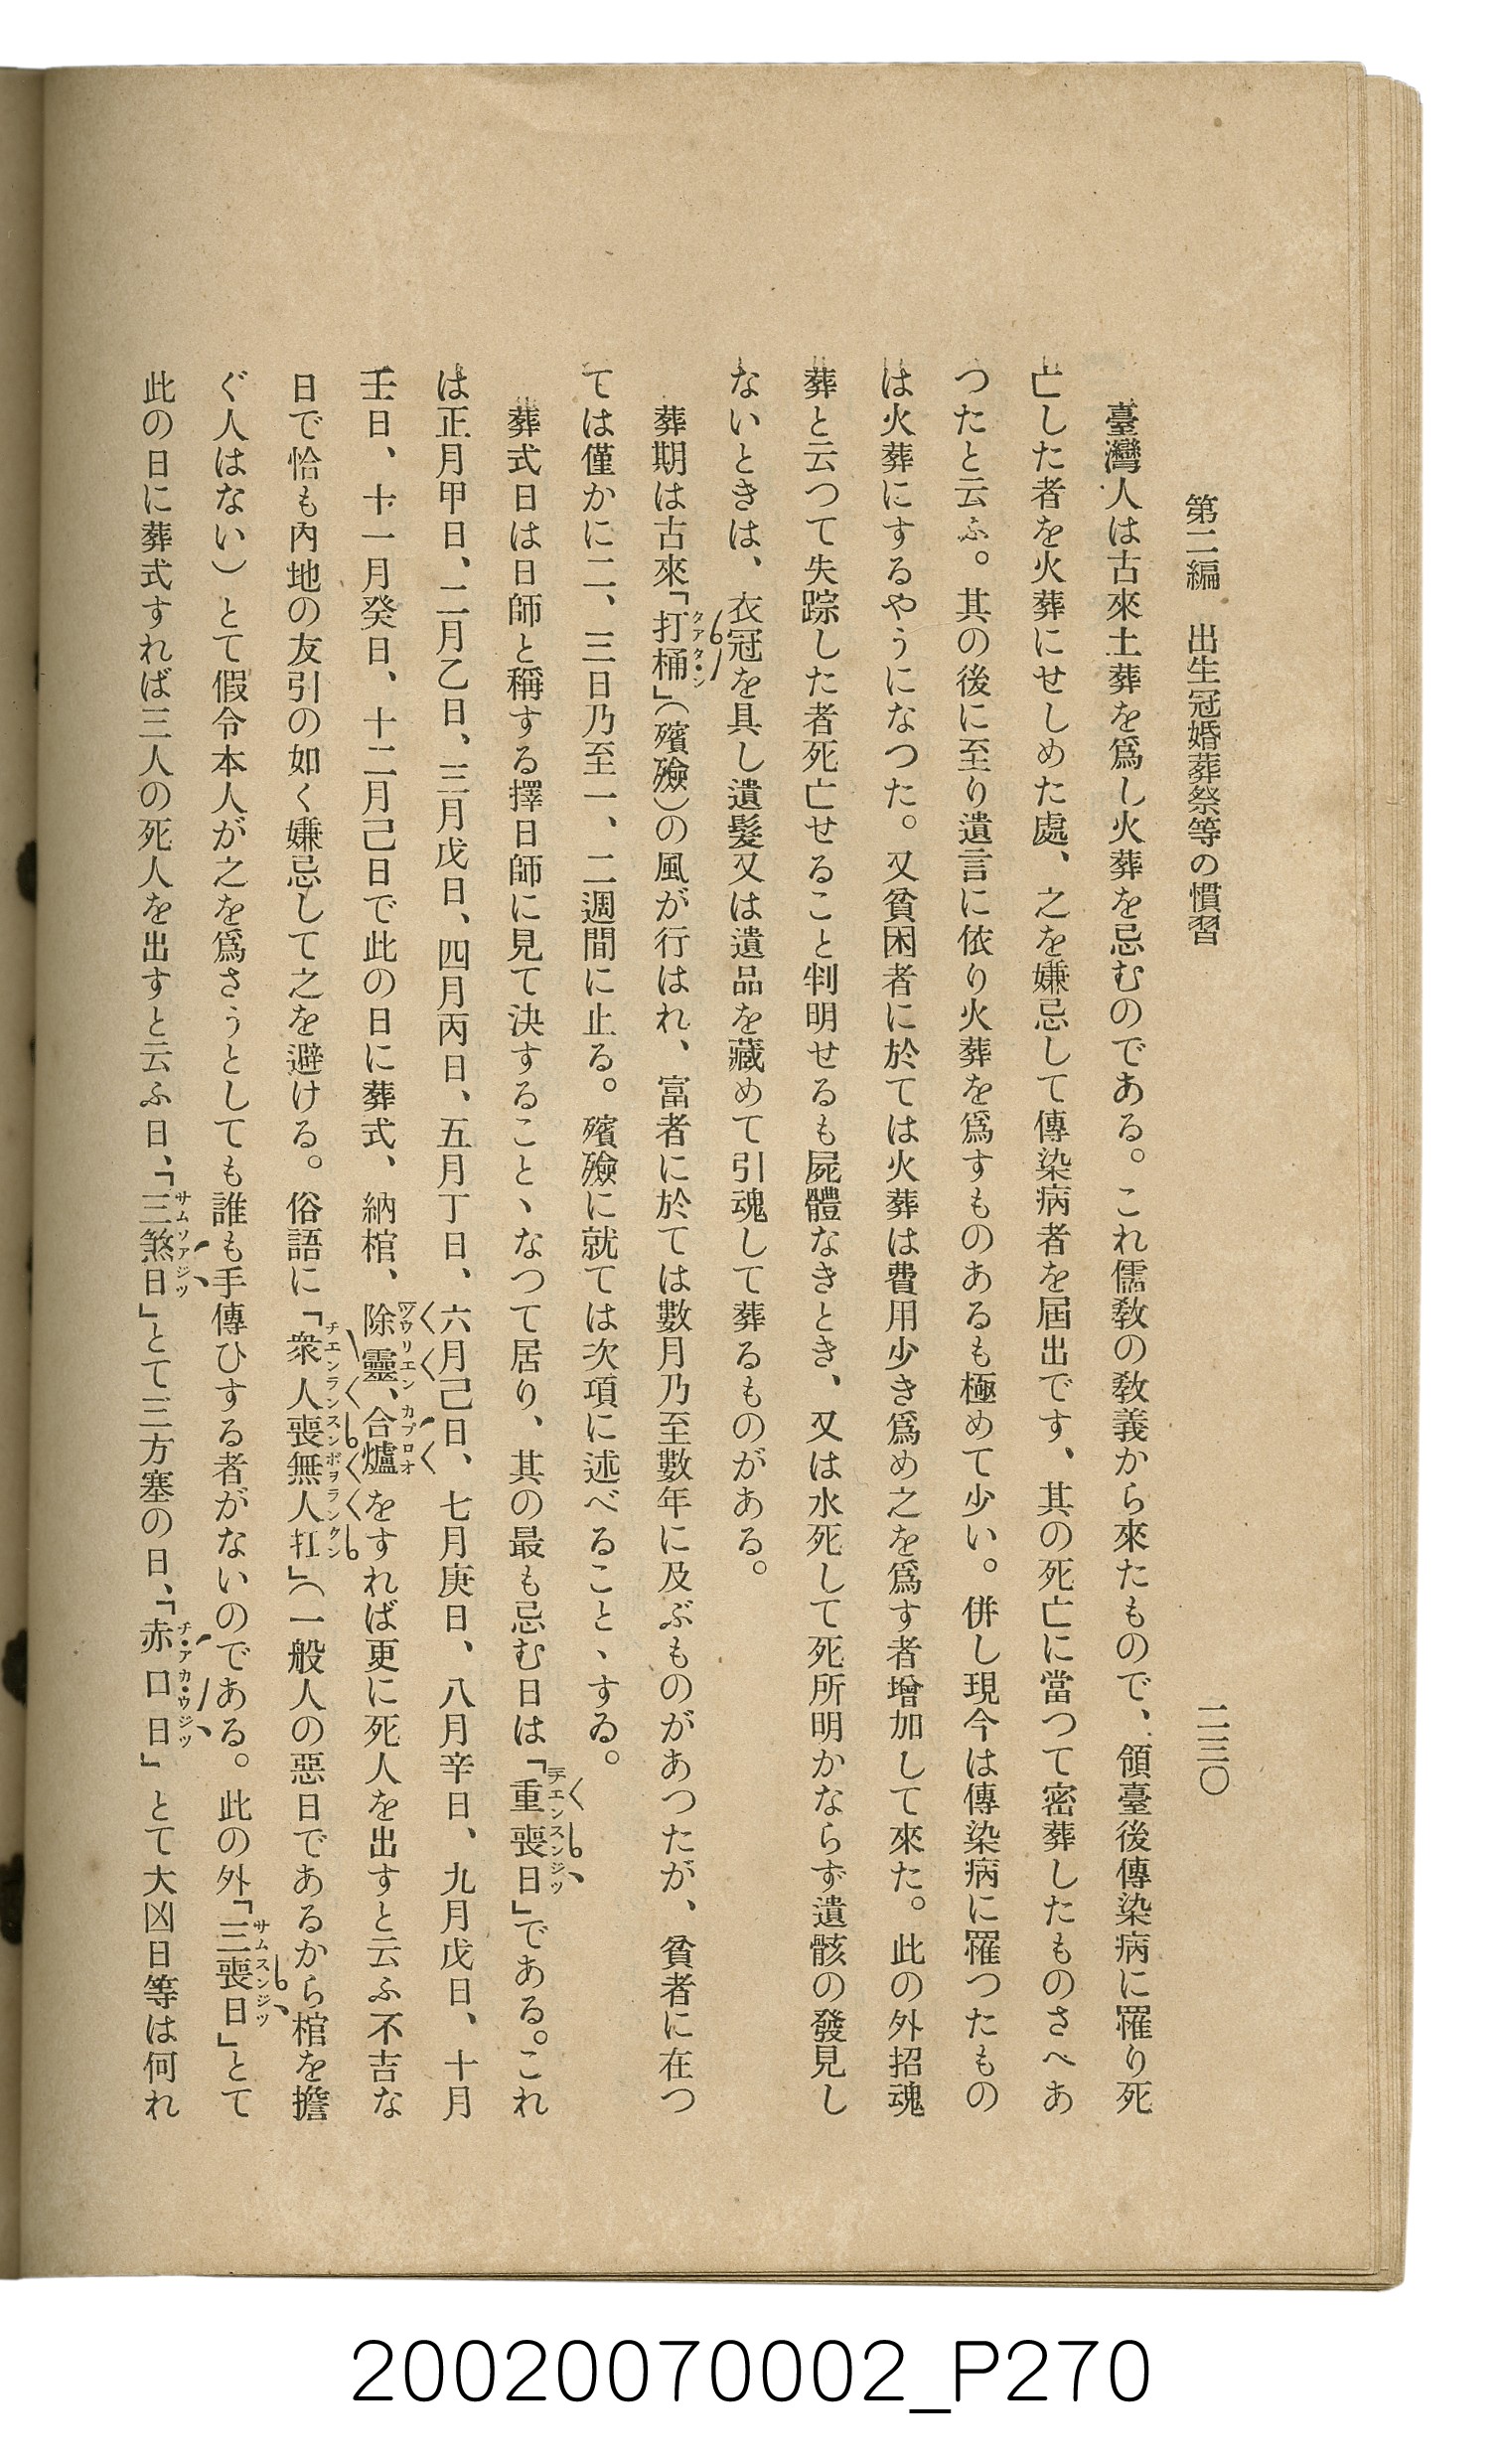 第二編　出生冠婚葬祭等の慣習
二三〇
臺灣人は古來土葬を爲し火葬を忌むのである。これ儒教の教義から來たもので、領臺後傳染病に罹り死
亡した者を火葬にせしめた處、之を嫌忌して傳染病者を屆出です、其の死亡に當つて密葬したものさへあ
つたと云ふ。其の後に至り遺言に依り火葬を爲すものあるも極めて少い。併し現今は傳染病に罹つたもの
は火葬にするやうになつた。又貧困者に於ては火葬は費用少き爲め之を爲す者增加して來た。此の外招魂
葬と云つて失踪した者死亡せること判明せるも屍體なきとき、又は水死して死所明かならず遺骸の發見し
ないときは、衣冠を具し遺髮又は遺品を藏めて引魂して葬るものがある。
葬期は古來「打桶」（殯殮）の風が行はれ、富者に於ては數月乃至數年に及ぶものがあつたが、貧者に在つ
ては僅かに二、三日乃至一、二週間に止る。殯殮に就ては次項に述べること、する。
葬式日は日師と稱する擇日師に見て決すること、なつて居り、其の最も忌む日は「重喪日」である。これ
は正月甲日、二月乙日、三月戊日、四月丙日、五月丁日、六月己日、七月庚日、八月辛日、九月戊日、十月
壬日、十一月癸日、十二月己日で此の日に葬式、納棺、除靈、合爐をすれば更に死人を出すと云ふ不吉な
日で恰も內地の友引の如く嫌忌して之を避ける。俗語に「衆人喪無人扛」（一般人の惡日であるから棺を擔
ぐ人はない）とて假令本人が之を爲さうとしても誰も手傳ひする者がないのである。此の外「三喪日」とて
此の日に葬式すれば三人の死人を出すと云ふ日、「三煞日」とて三方塞の日、「赤口日」とて大凶日等は何れ
20020070002_P270